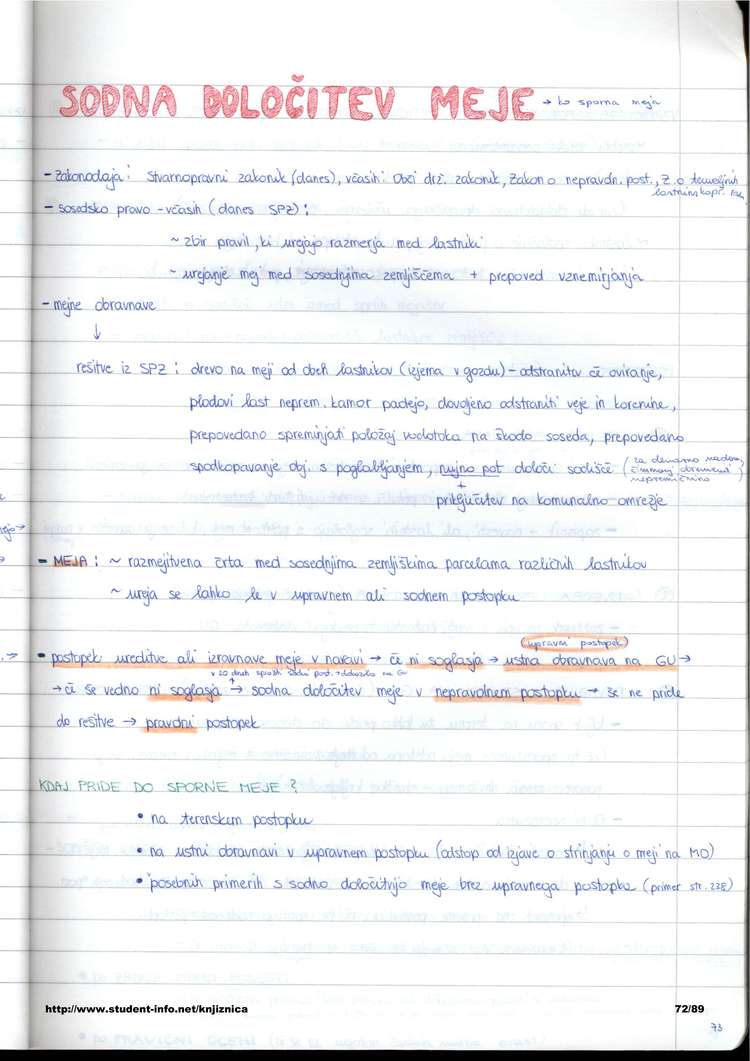 SODNA DOLOČITEV MEJE → ko sporna meja
- Zakonodaja: Stvarnopravni zakonik (danes), včasih: Obči drž. zakonik, Zakon o nepravdn. post., Z. o temeljnih
lastninskopr.
- sosedsko pravo - včasih (danes SPZ):
~ zbir pravil, ki urejajo razmerja med lastniki
~ urejanje mej med sosednjima zemljiščema + prepoved vznemirjanja
- mejne obravnave
↓
rešitve iz SPZ: drevo na meji od obeh lastnikov (izjema v gozdu) - odstranitev če oviranje,
plodovi last neprem. kamor padejo, dovoljeno odstraniti veje in korenine,
prepovedano spreminjati položaj vodotoka na škodo soseda, prepovedano
spodkopavanje obj. s poglabljanjem, nujno pot določi sodišče (za denarno nadom.
nepremičnino
+
priključitev na komunalno omrežje
- MEJA: ~ razmejitvena črta med sosednjima zemljiškima parcelama različnih lastnikov
~ ureja se lahko le v upravnem ali sodnem postopku
(upravni postopek)
• postopek ureditve ali izravnave meje v naravi → če ni soglasja → ustna obravnava na GU →
→ če še vedno ni soglasja → sodna določitev meje v nepravdnem postopku → še ne pride
do rešitve → pravdni postopek
KDAJ PRIDE DO SPORNE MEJE?
• na terenskem postopku
• na ustni obravnavi v upravnem postopku (odstop od izjave o strinjanju o meji na MO)
• posebnih primerih s sodno določitvijo meje brez upravnega postopka (primer str. 238)
http://www.student-info.net/knjiznica 72/89
73